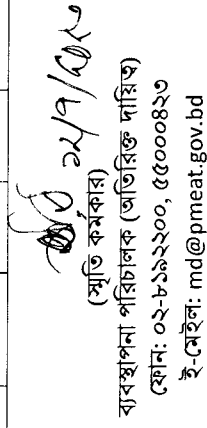 ১২/৭/২০২০
(স্মৃতি কর্মকার)
ব্যবস্থাপনা পরিচালক (অতিরিক্ত দায়িত্ব)
ফোন: ০২-৮১৯২২০০, ৫৫০০০৪২৩
ই-মেইল: md@pmeat.gov.bd